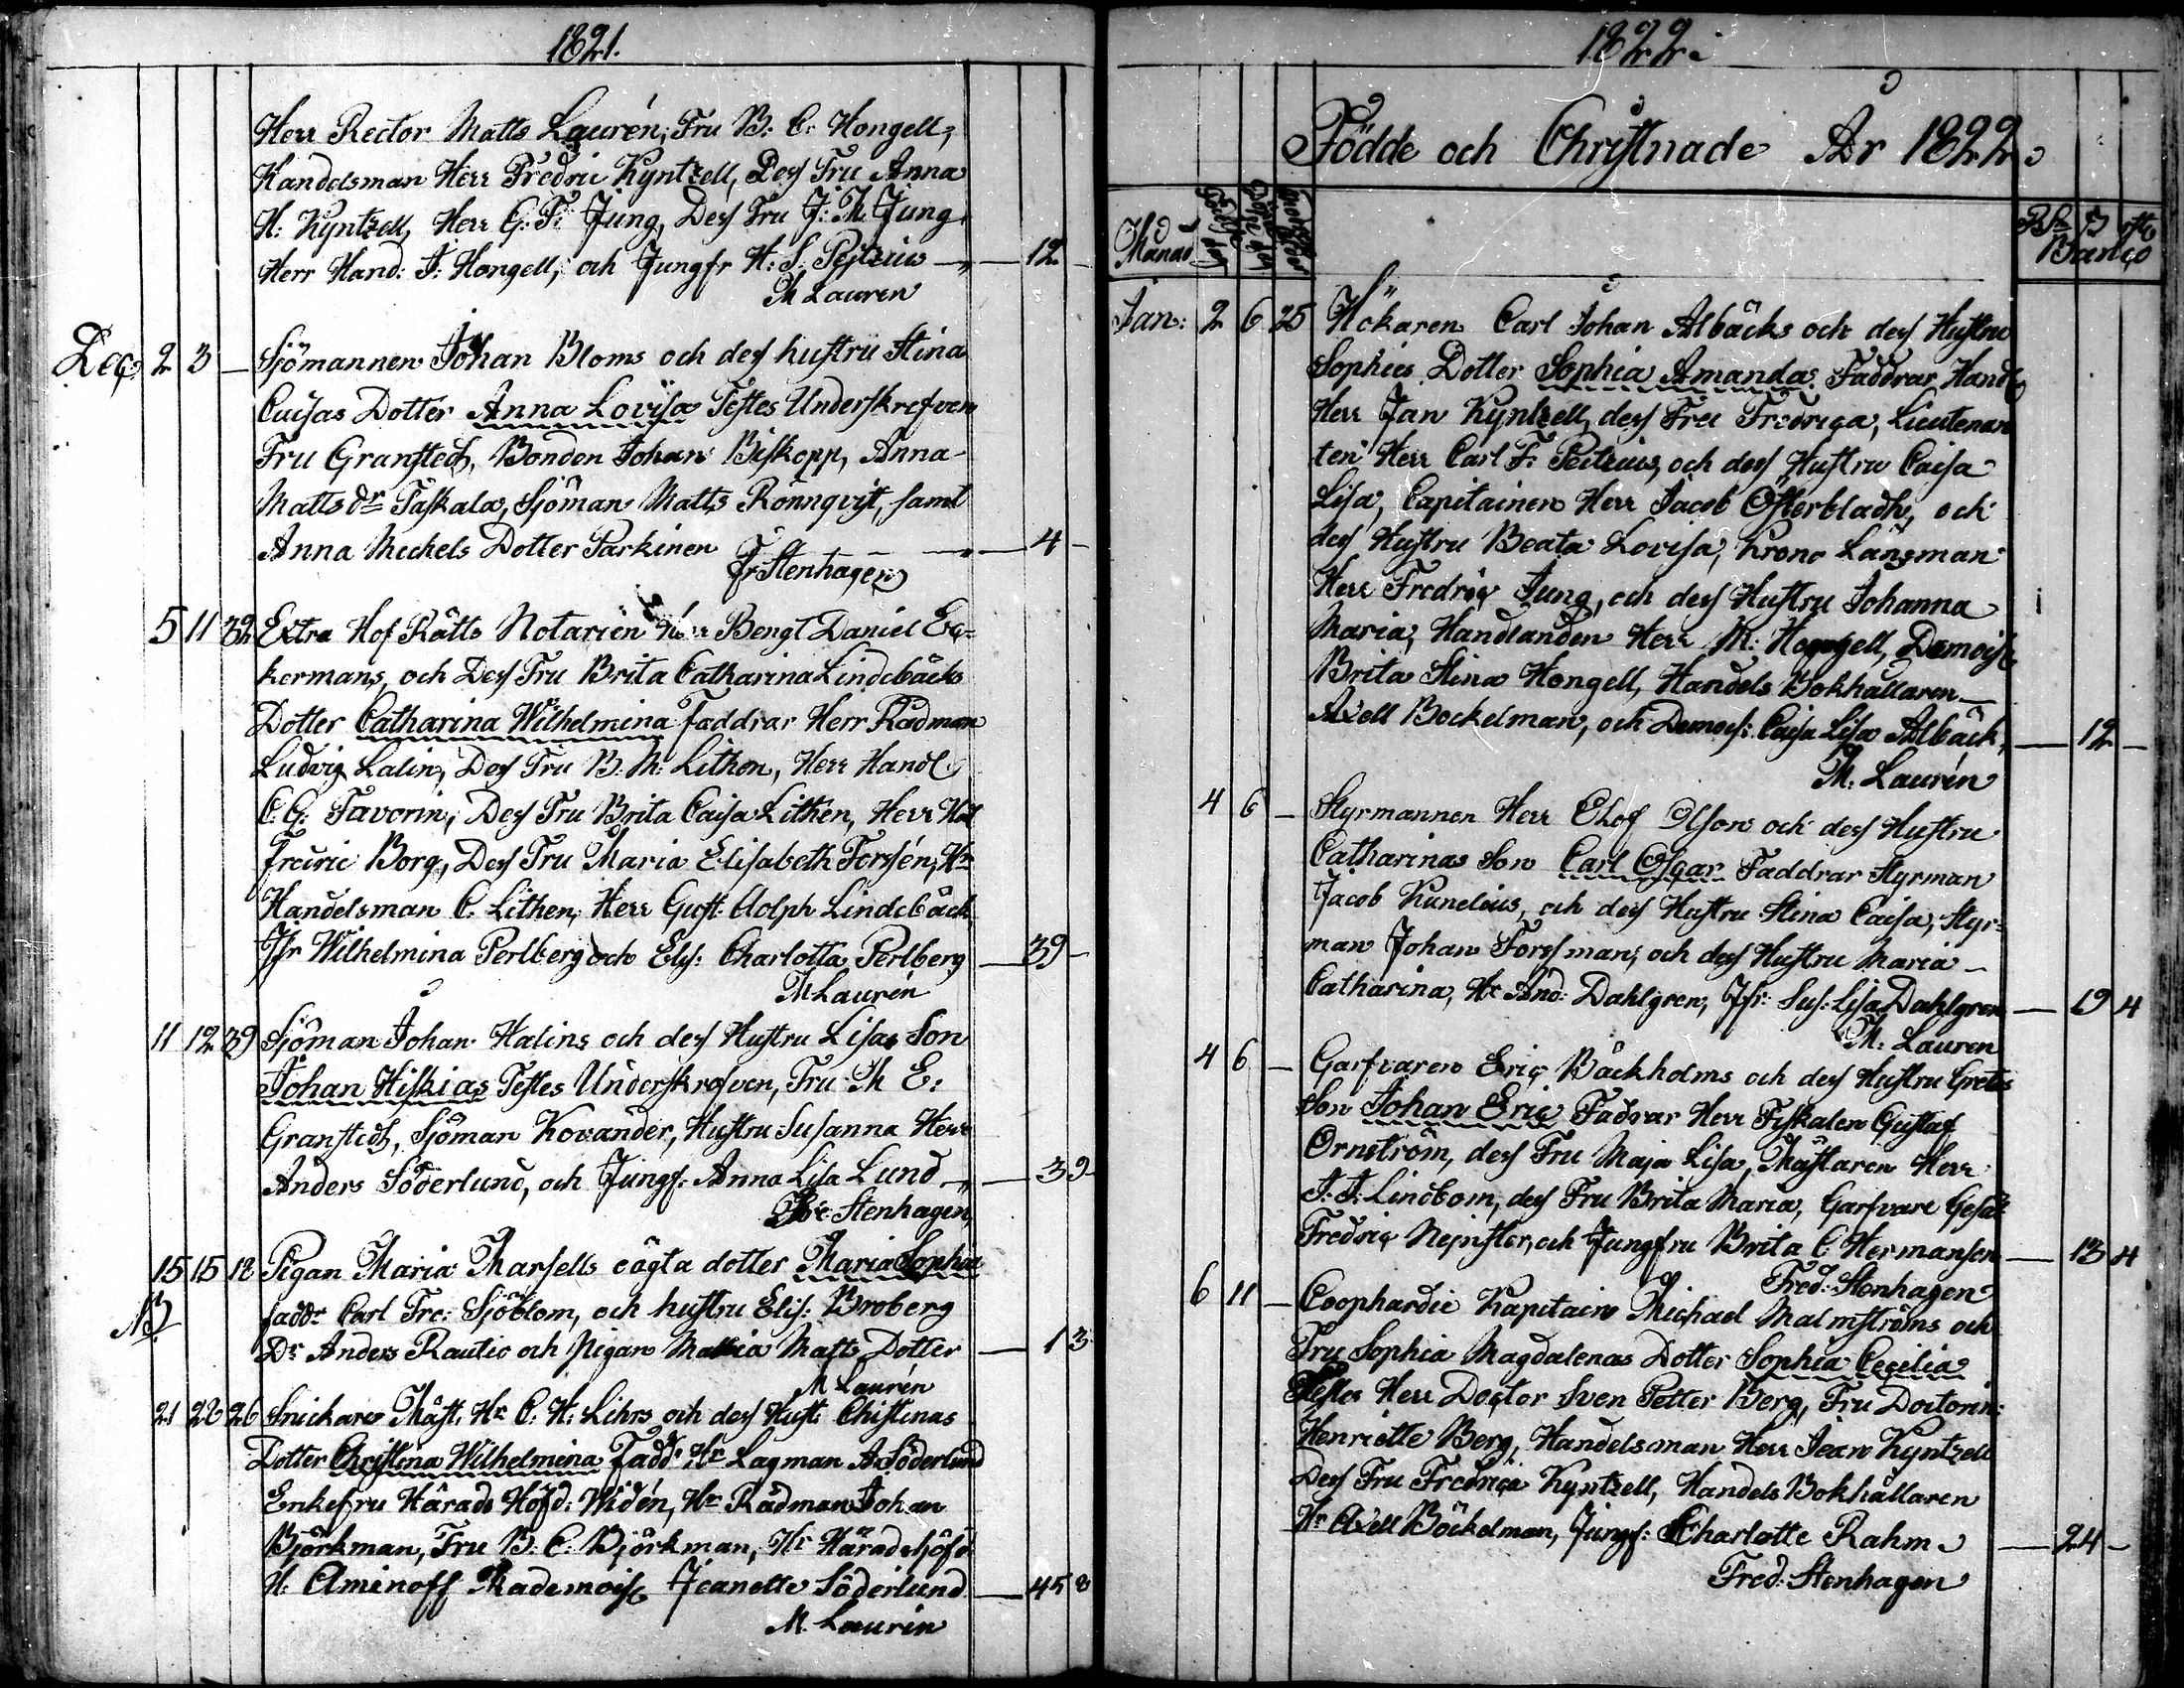 1821.
Herr Rector Matts Laurén, Fru B. C. Hongell,
Handelsman Herr Fredric Kyntzell, Dess Fru Anna
H. Kyntzell, Herr G. F. Jung, Dess Fru J. M. Jung
Herr Hand: J. Hongell, och Jungfr H. S. Peitzius — 12
M Lauren
Dec 2 3 — Sjömannen Johan Bloms och dess hustru Stina
Caisas Dotter Anna Lovisa Testes Underskrefven
Fru Granstedt, Bonden Johan Biskopp, Anna
Matts dr Taskala, Sjöman Matts Rönnqvist, samt
Anna Michels Dotter Parkinen — 4 —
Fr Stenhagen
5 11 32 Extra Hof Rätts Notarien Herr Bengt Daniel Ec=
kermans, och Dess Fru Brita Catharina Lindebäcks
Dotter Catharina Wilhelmina Faddrar Herr Rådman
Ludvig Lalin, Dess Fru B. M. Lithen, Herr Handl
C. G. Favorin, Dess Fru Brita Caisa Lithén, Herr Hdl
Fredric Borg, Dess Fru Maria Elisabeth Forssén, Hr
Handelsman C. Lithen, Herr Gust. Adolph Lindebäck
Jfr Wilhelmina Perlberg och Elis: Charlotta Perlberg — 39 —
M Laurén
11 12 39 Sjöman Johan Halins och dess Hustru Lisas Son
Johan Hiskias Testes Underskrefven, Fru M E.
Granstedt, Sjöman Kovander, Hustru Susanna Herr
Anders Söderlund, och Jungf: Anna Lisa Lund — 39
Stenhagen
15 15 18 Pigan Maria Marsells oägta dotter Maria Sophia
NB
faddr Carl Fre: Sjöblom, och hustru Elis: Broberg
Dr Anders Rautio och Pigan Maria Matts Dotter — 1 3
M Laurén
21 28 26 Snickare Mäst. Hr C. H. Lihrs och dess Hust. Chistinas
Dotter Christina Wilhelmina Fadd. Hr Lagman A Söderlund
Enkefru Härads Höfd: Widén, Hr Rådman Johan
Björkman, Fru B. C. Björkman, Hr Häradshöfd
H. Aminoff Mademois Jeanette Söderlund — 45 8
M. Laurén
1822.
Födde och Christnade År 1822.
Månad
Banco
Jan: 2 6 25 Hökaren Carl Johan Albäcks och dess Hustru
Sophies Dotter Sophia Amanda Faddrar Handl
Herr Jan Kyntzell, dess Fru Fredriga, Lieutenan
ten Herr Carl F. Peitzius, och dess Hustru Caisa
Lisa, Capitainen Herr Jacob Österbladh, och
dess Hustru Beata Lovisa, Krono Länsman
Herr Fredric Jung, och dess Hustru Johanna
Maria, Handlanden Herr M: Hongell, Demois
Brita Stina Hongell, Handels Bokhållaren
Axell Bockelman, och Demois: Caisa Lisa Albäck, — 12 —
M. Laurén
4 6 — Styrmannen Herr Olof Olson och dess Hustru
Catharinas Son Carl Osgar Faddrar Styrman
Jacob Kunelius, och dess Hustru Stina Caisa, Styr=
man Johan Forssman, och dess Hustru Maria
Catharina, Hr And: Dahlgren, Jfr: Sus: Lisa Dahlgren — 19 4
M. Lauren
4 6 — Garfvaren Eric Bäckholms och dess Hustru Gretas
Son Johan Eric Fadrar Herr Fiskalen Gustaf
Ornström, dess Fru Maja Lisa, Mästaren Herr
J. J. Lindbom, dess Fru Brita Maria, Garfvare Gesäll
Fredric Nejnster, och Jungfru Brita C Hermanson — 13 4
Fred: Stenhagen
6 11 — Coophardie Kapitain Michael Malmströms och
Fru Sophia Magdalenas Dotter Sophia Cecilia
Testes Herr Doctor Sven Petter Berg, Fru Doctorin:
Henriette Berg, Handelsman Herr Jean Kyntzell
Dess Fru Fredrica Kyntzell, Handels Bokhållaren
Hr Axell Böckelman, Jungf: Charlotte Rahm — 24 —
Fred: Stenhagen